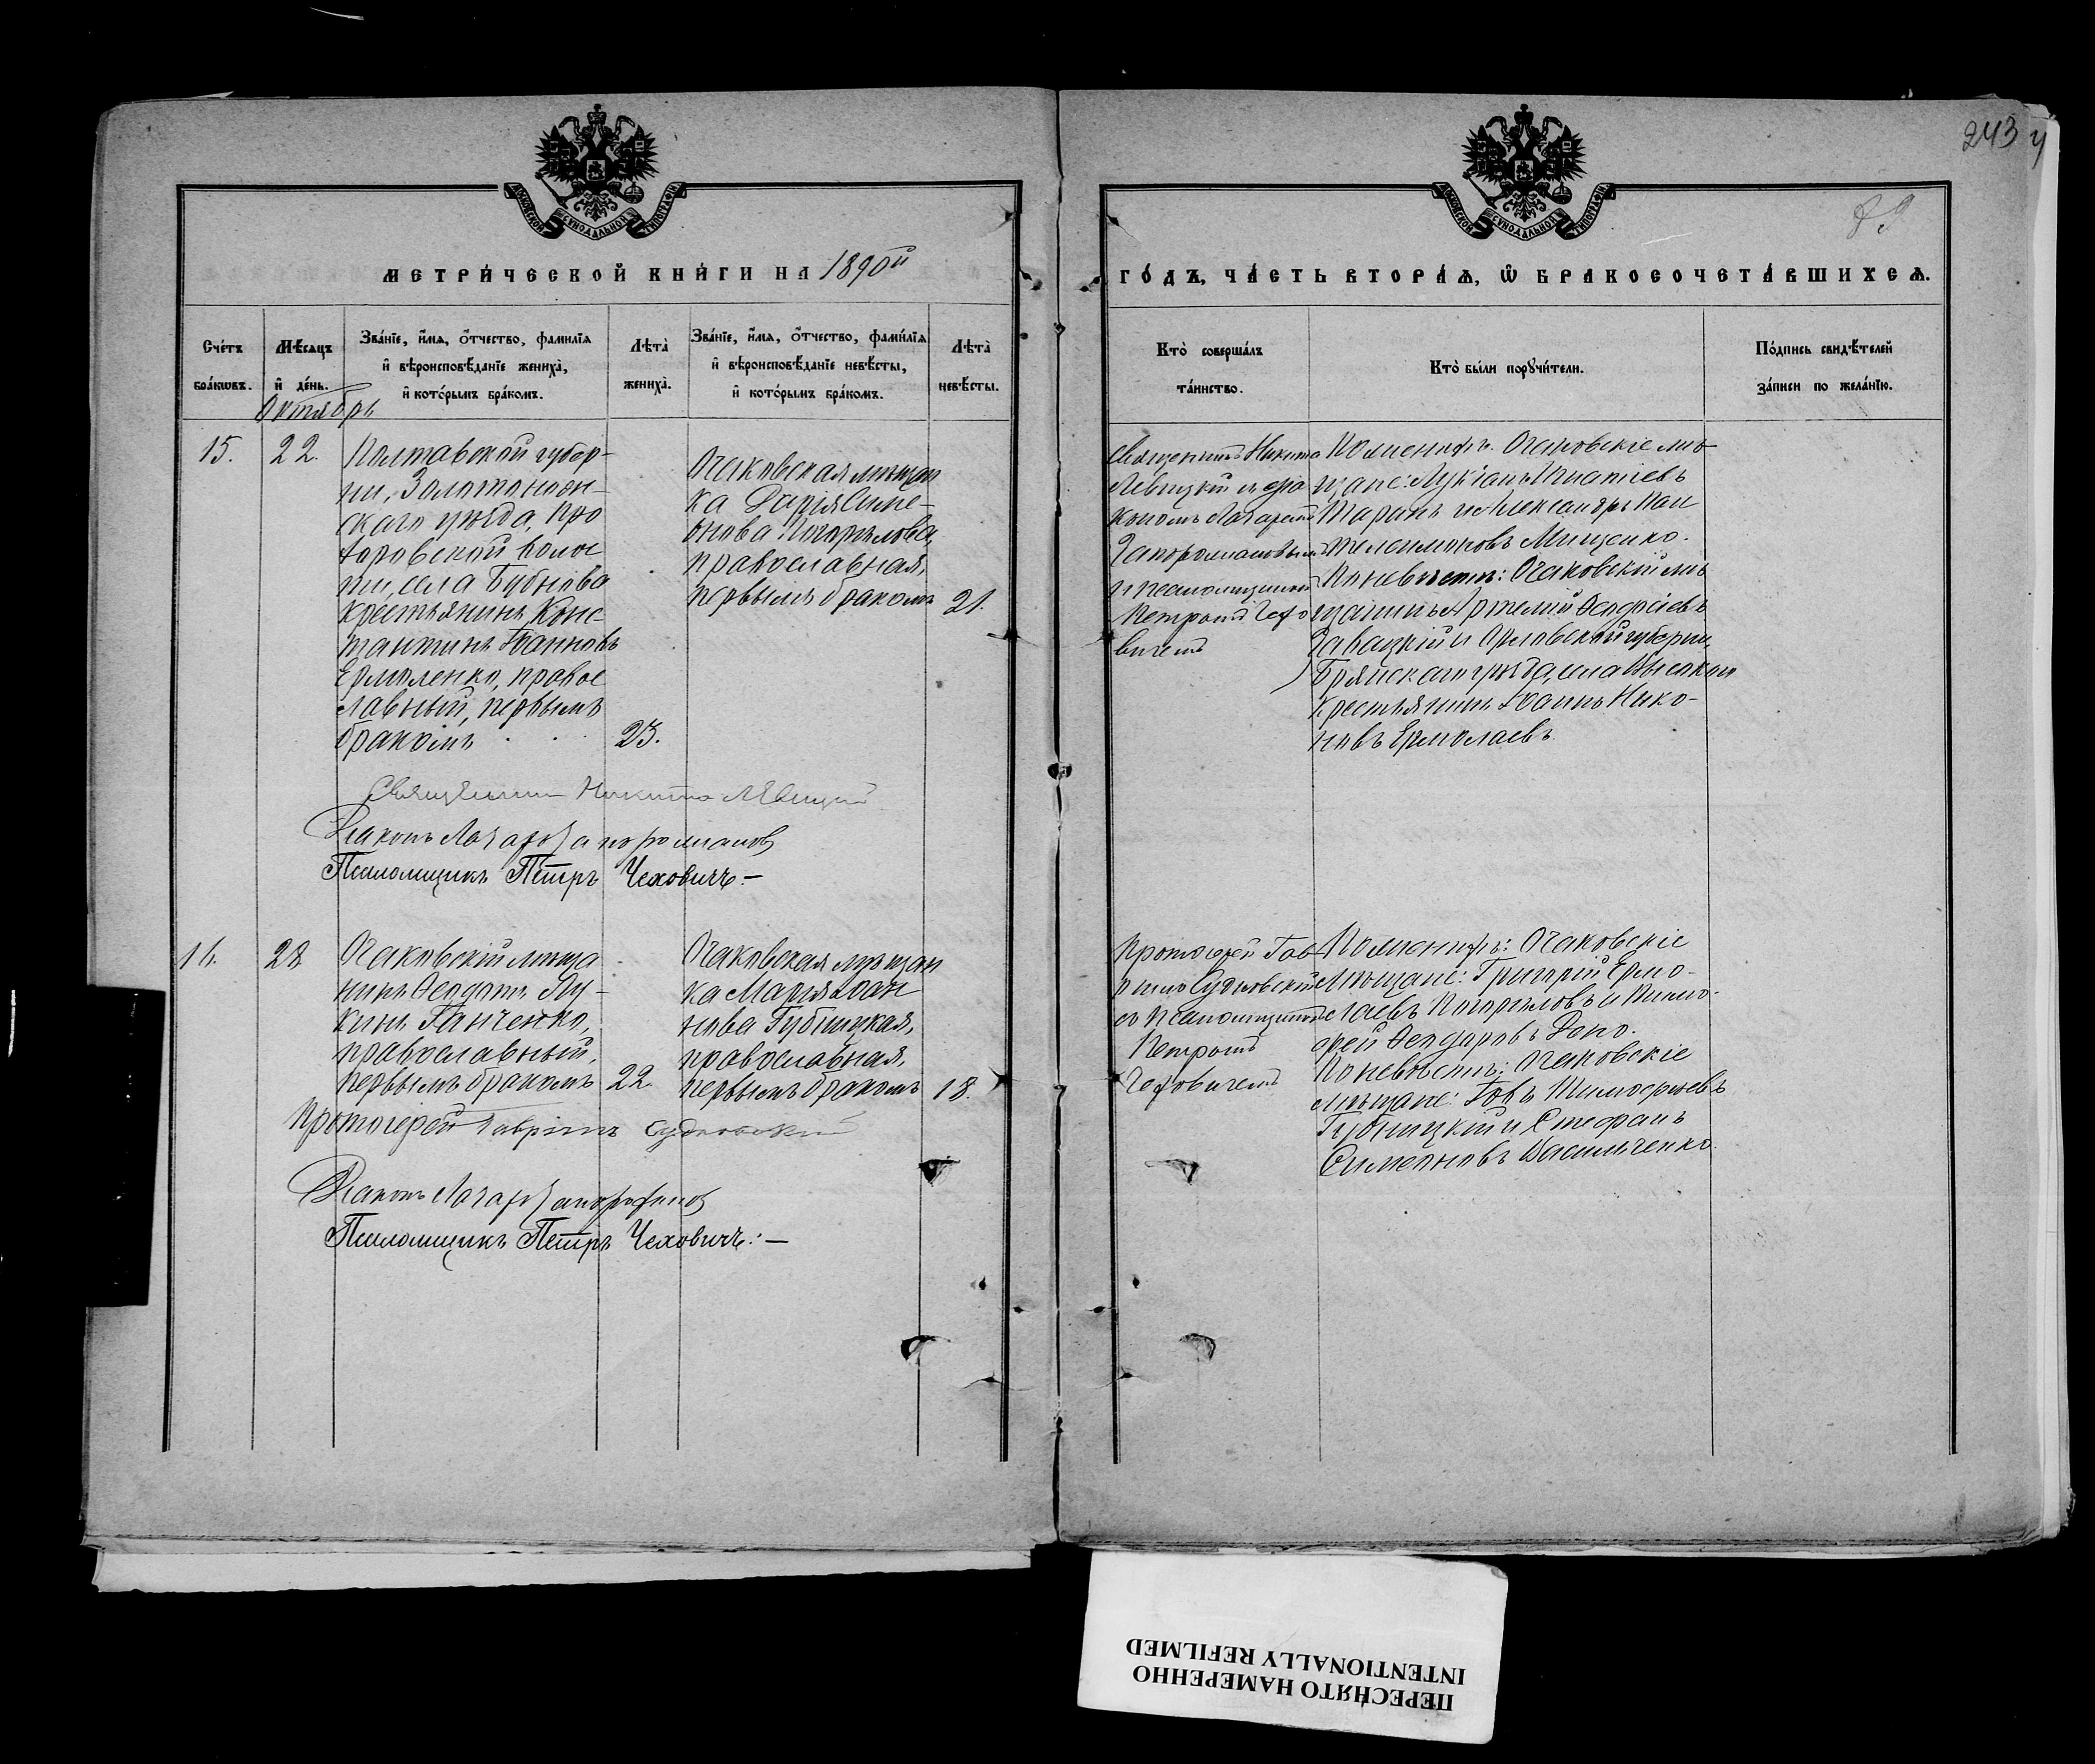 243
89
МЕТРИ́ЧЕСКОЙ КНИ́ГИ НА 1890й
ГО́ДЪ, ЧА́СТЬ ВТОРА́Ѧ, Ѽ БРАКОСОЧЕТА́ВШИХСѦ.
Сче́тъ бра́кѡвъ.
Мѣ́сяцъ и́ де́нь.
Зва́нїе, и҆́мя, ѻ҆́тчество, фами́лїя и҆ вѣроисповѣ́данїе жениха̀, и҆ кото́рымъ бра́комъ.
Лѣта̀ жениха̀.
Зва́нїе, и҆́мя, ѻ҆́тчество, фами́лїя и҆ вѣроисповѣ́данїе невѣ́сты, и҆ кото́рымъ бра́комъ.
Лѣта̀ невѣ́сты.
Кто̀ соверша́лъ та́инство.
Кто̀ бы́ли порꙋчи́тели.
По́дпись свидѣ́телей за́писи по жела́нїю.
Октябрь
15.
22.
Полтавской губер-
ни, Золотоношен-
скаго уѣзда, Про
хоровской волос
ти, села Бубнова
крестьянинъ Конс
тантинъ Іоанновъ
Ермоленко, правос
лавный, первымъ
бракомъ
23.
Очаковская мѣщан
ка Дарія Симе-
онова Погорѣлова,
православная,
первымъ бракомъ
21.
Священникъ Никита
Левицкій съ діа
кономъ Лазаремъ
Запорожановымъ
и псаломщикомъ
Петромъ Чехо
вичемъ
По женихѣ: Очаковскіе мѣ-
щане: Лукіанъ Игнатіевъ
Таранъ и Александръ Пан
телеимоновъ Мищенко.
По невѣстѣ: Очаковскій мѣ
щанинъ Артемій Ѳеодосіевъ
Завацкій и Орловской губерни,
Брянскаго уѣзда, села Высокаго
крестьянинъ Іоаннъ Нико-
новъ Ермолаевъ.
Священникъ Никита Левицкій
Діаконъ Лазарь
Псаломщикъ Петръ Чеховичъ.—
16.
28
Очаковскій мѣща
нинъ Ѳеодотъ Лу-
кинъ Ганченко,
православный,
первымъ бракомъ
22.
Очаковская мѣщан
ка Марія Іоан
нова Губницкая,
православная,
первымъ бракомъ
18.
Протоіерей Гав-
ріилъ Судковскій
со псаломщикомъ
Петромъ
Чеховичемъ
По женихѣ: Очаковскіе
Мѣщане: Григорій Ермо-
лаевъ Погорѣловъ и Тимо-
фей Ѳеодоровъ
По невѣстѣ: Очаковскіе
мѣщане: Іовъ Тимофеевъ
Губницкій и Стефанъ
Симеоновъ Василиченко.
Протоіерей Гавріилъ Судковскій
Діаконъ Лазарь
Псаломщикъ Петръ Чеховичъ:—
ПЕРЕСНЯТО НАМЕРЕННО
INTENTIONALLY REFILMED